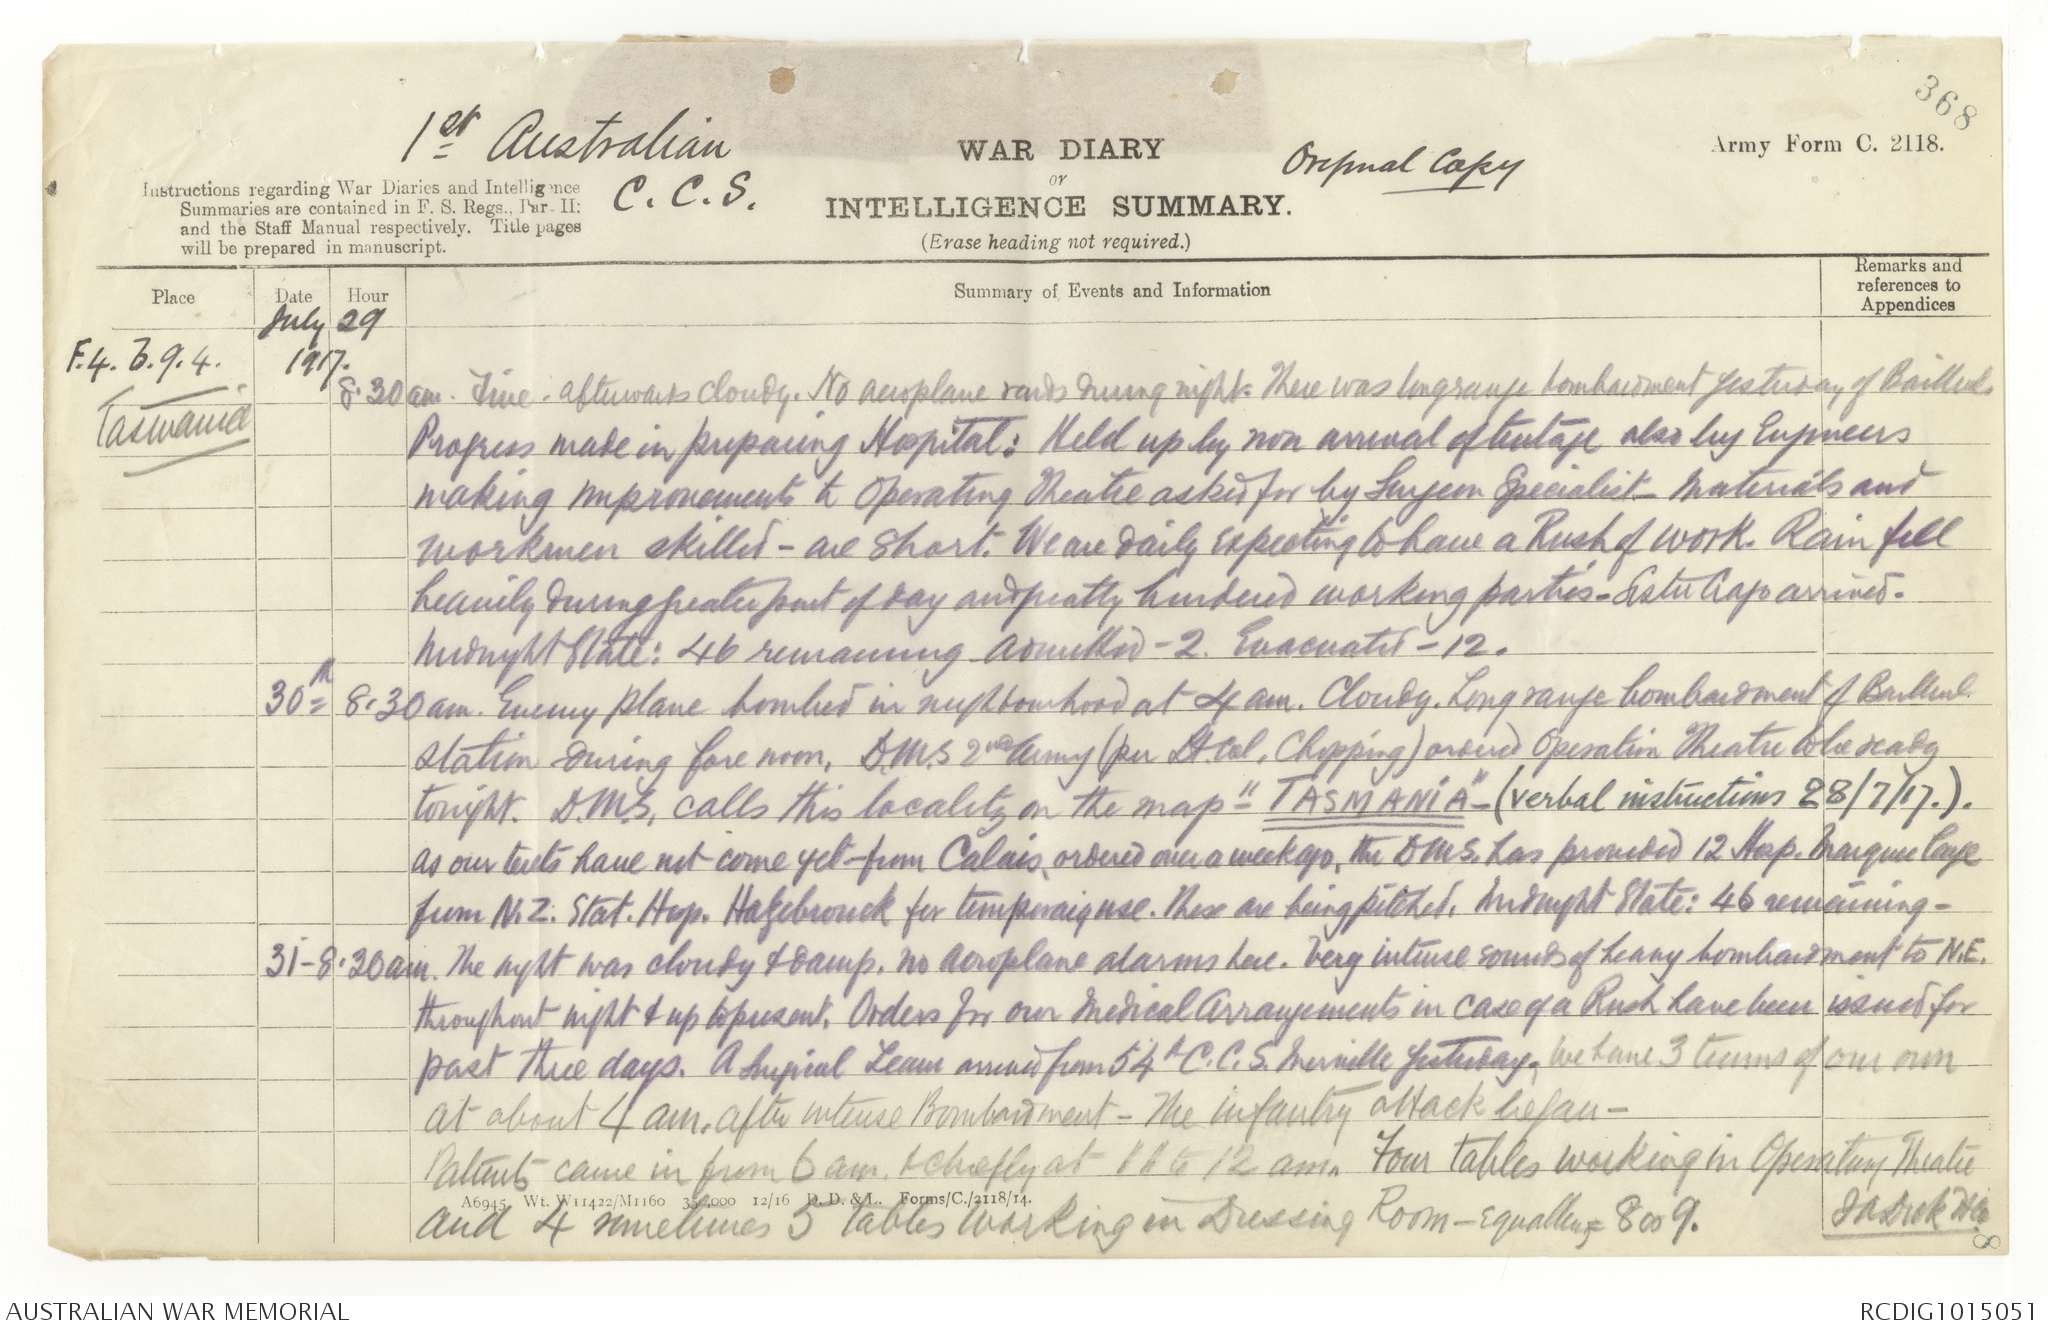 368
1st Australian
C.C.S.
WAR DIARY
or
INTELLIGENCE SUMMARY.
(Erase heading not required.)
Original Copy
Army Form C. 2118.
Instructions regarding War Diaries and Intelligence
Summaries are contained in F. S. Regs., Par. II:
and the Staff Manual respectively. Title pages
will be prepared in manuscript.
Place
Date
Hour
Summary of Events and Information
Remarks and
references to
Appendices
July 29
F.4. b.9.4. 1917.
Tasmania
8.30 am. Fine. afterwards cloudy. No aeroplane raids during night. There was longrange bombardment yesterday of Bailleul.
Progress made in preparing Hospital: Held up by non arrival of tentage also by Engineers
making improvements to Operating Theatre asked for by Surgeon Specialist – Materials and
workmen skilled – are short. We are daily expecting to have a Rush of work. Rain fell
heavily during greater part of day and greatly hindered working parties – Sister arrived.
Midnight State: 46 remaining Admitted – 2. Evacuated – 12.
30th 8.30 am. Enemy plane bombed in neighbourhood at 4 am. Cloudy. Long range bombardment of Bailleul
station during fore noon. D.M.S 2nd Army (per Lt Col. Chopping) ordered Operation Theatre to be ready
tonight. D.M.S. calls this locality on the map "TASMANIA" – (verbal instructions 28/7/17.).
As our tents have not come yet – from Calais, ordered over a week ago, the D.M.S. has provided 12 Hosp. Marquee large
from N.Z. Stat. Hosp. Hazebrouck for temporary use. These are being pitched. Midnight State: 46 remaining –
31 – 8.30 am. The night was cloudy & damp. no Aeroplane alarms here. Very intense sounds of heavy bombardment to N.E.
throughout night & up to present. Orders for our Medical Arrangements in case of a Rush have been issued for
past three days. A Surgical Team arrived from 54th C.C.S. Merville yesterday. We have 3 teams of our own
At about 4 am. after intense Bombardment – The infantry attack began –
Patients came in from 6 am. & chiefly at 11 to 12 am. Four tables working in Operating Theatre
and 4 sometimes 5 tables working in Dressing Room – equalling 8 or 9.
A6945 Wt. W11422/M1160 35,000 12/16 D. D. & L. Forms/C./2118/14.
8
AUSTRALIAN WAR MEMORIAL
RCDIG1015051